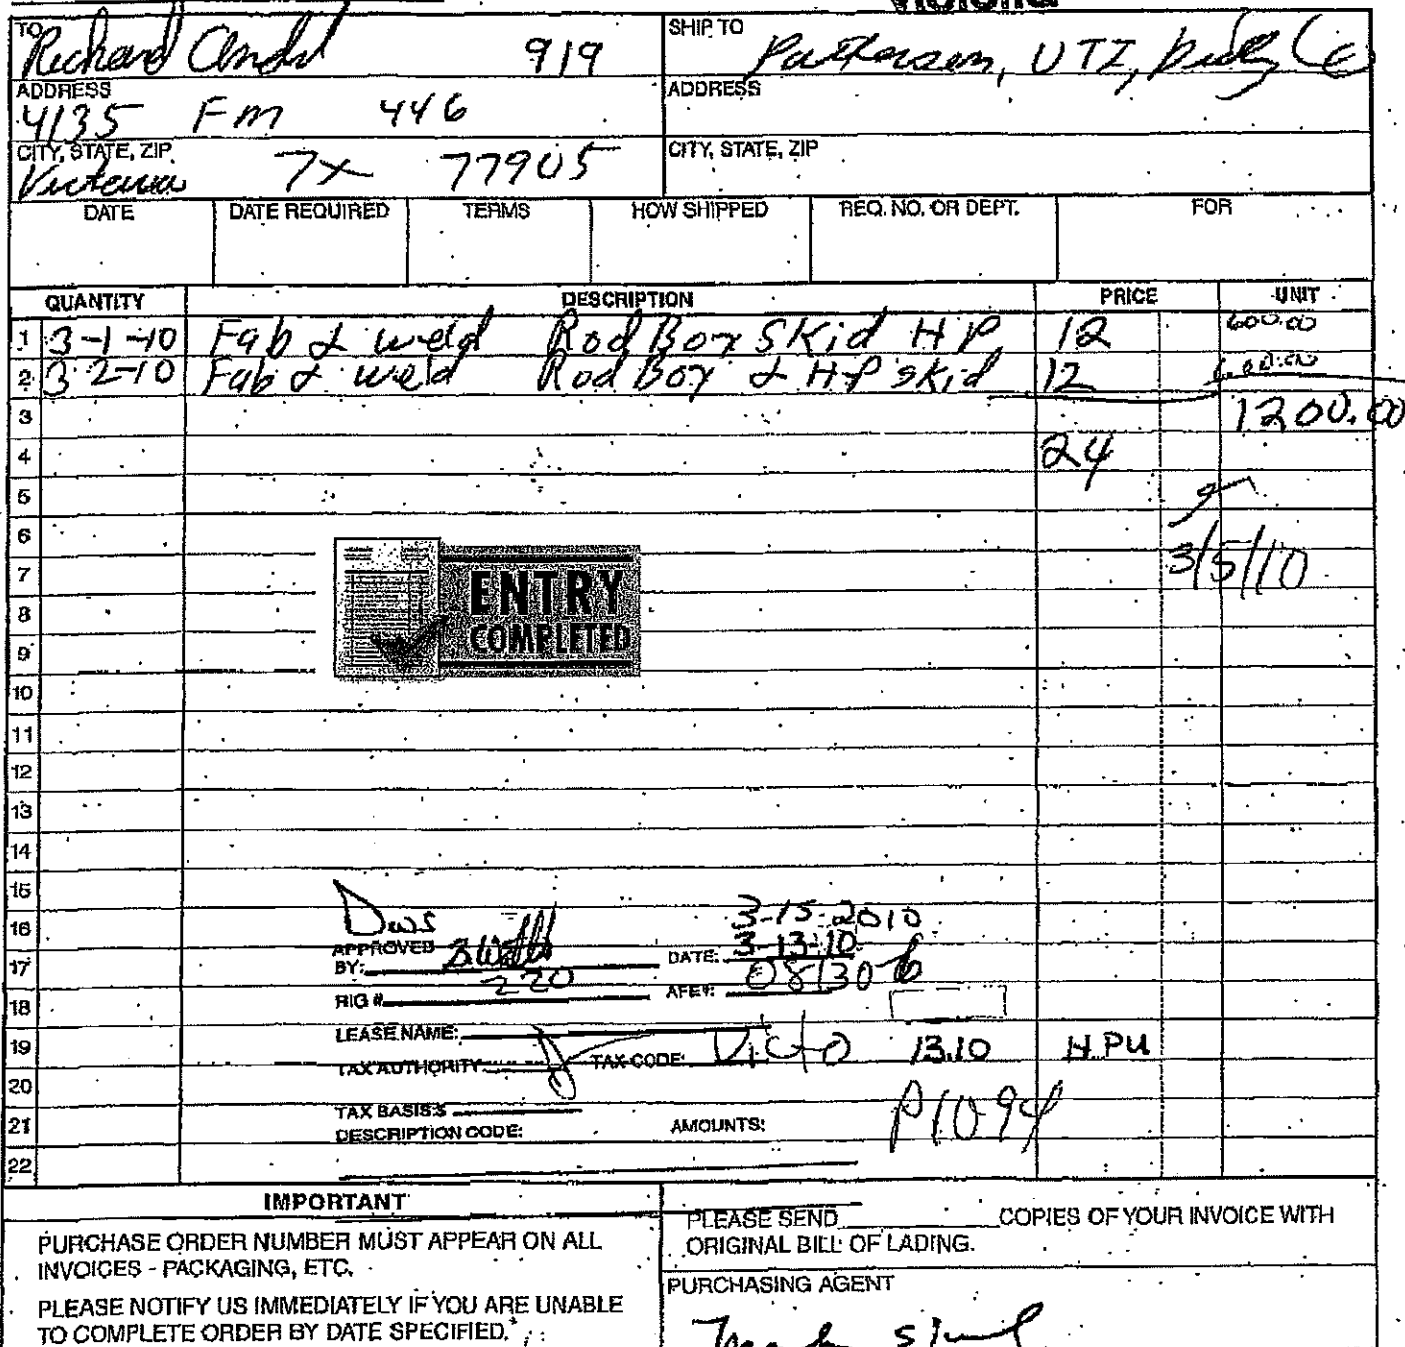 Victoria
TO Richard 919
SHIP TO Patterson, UTI,
ADDRESS 4135 Fm 446
ADDRESS
CITY, STATE, ZIP Victoria TX 77905
CITY, STATE, ZIP
DATE DATE REQUIRED TERMS HOW SHIPPED REQ. NO. OR DEPT. FOR
QUANTITY DESCRIPTION PRICE UNIT
1 3-1-10 Fab & weld Rod Box Skid HP 12 600.00
2 3-2-10 Fab & weld Rod Box & HP skid 12 600.00
3 1200.00
4 24
5
6
7 3/5/10
ENTRY
COMPLETED
8
9
10
11
12
13
14
15
16 3-15-2010
17 APPROVED BY: DATE: 3-13-10
18 RIG # 220 AFE#: 08130
19 LEASE NAME:
TAX AUTHORITY TAX CODE: Victo 13.10 H PU
20
TAX BASIS $
21 DESCRIPTION CODE: AMOUNTS: P1094
22
IMPORTANT
PURCHASE ORDER NUMBER MUST APPEAR ON ALL
INVOICES - PACKAGING, ETC.
PLEASE NOTIFY US IMMEDIATELY IF YOU ARE UNABLE
TO COMPLETE ORDER BY DATE SPECIFIED.
PLEASE SEND COPIES OF YOUR INVOICE WITH
ORIGINAL BILL OF LADING.
PURCHASING AGENT